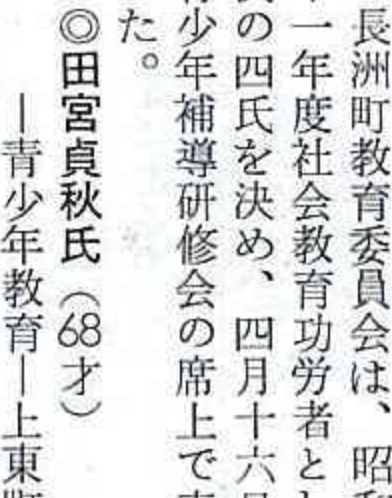 長洲町教育委員会は、昭
一年度社会教育功労者と
の四氏を決め、四月十六
少年補導研修会の席上で
た。
◎田宮貞秋氏（68才）
―青少年教育―上東